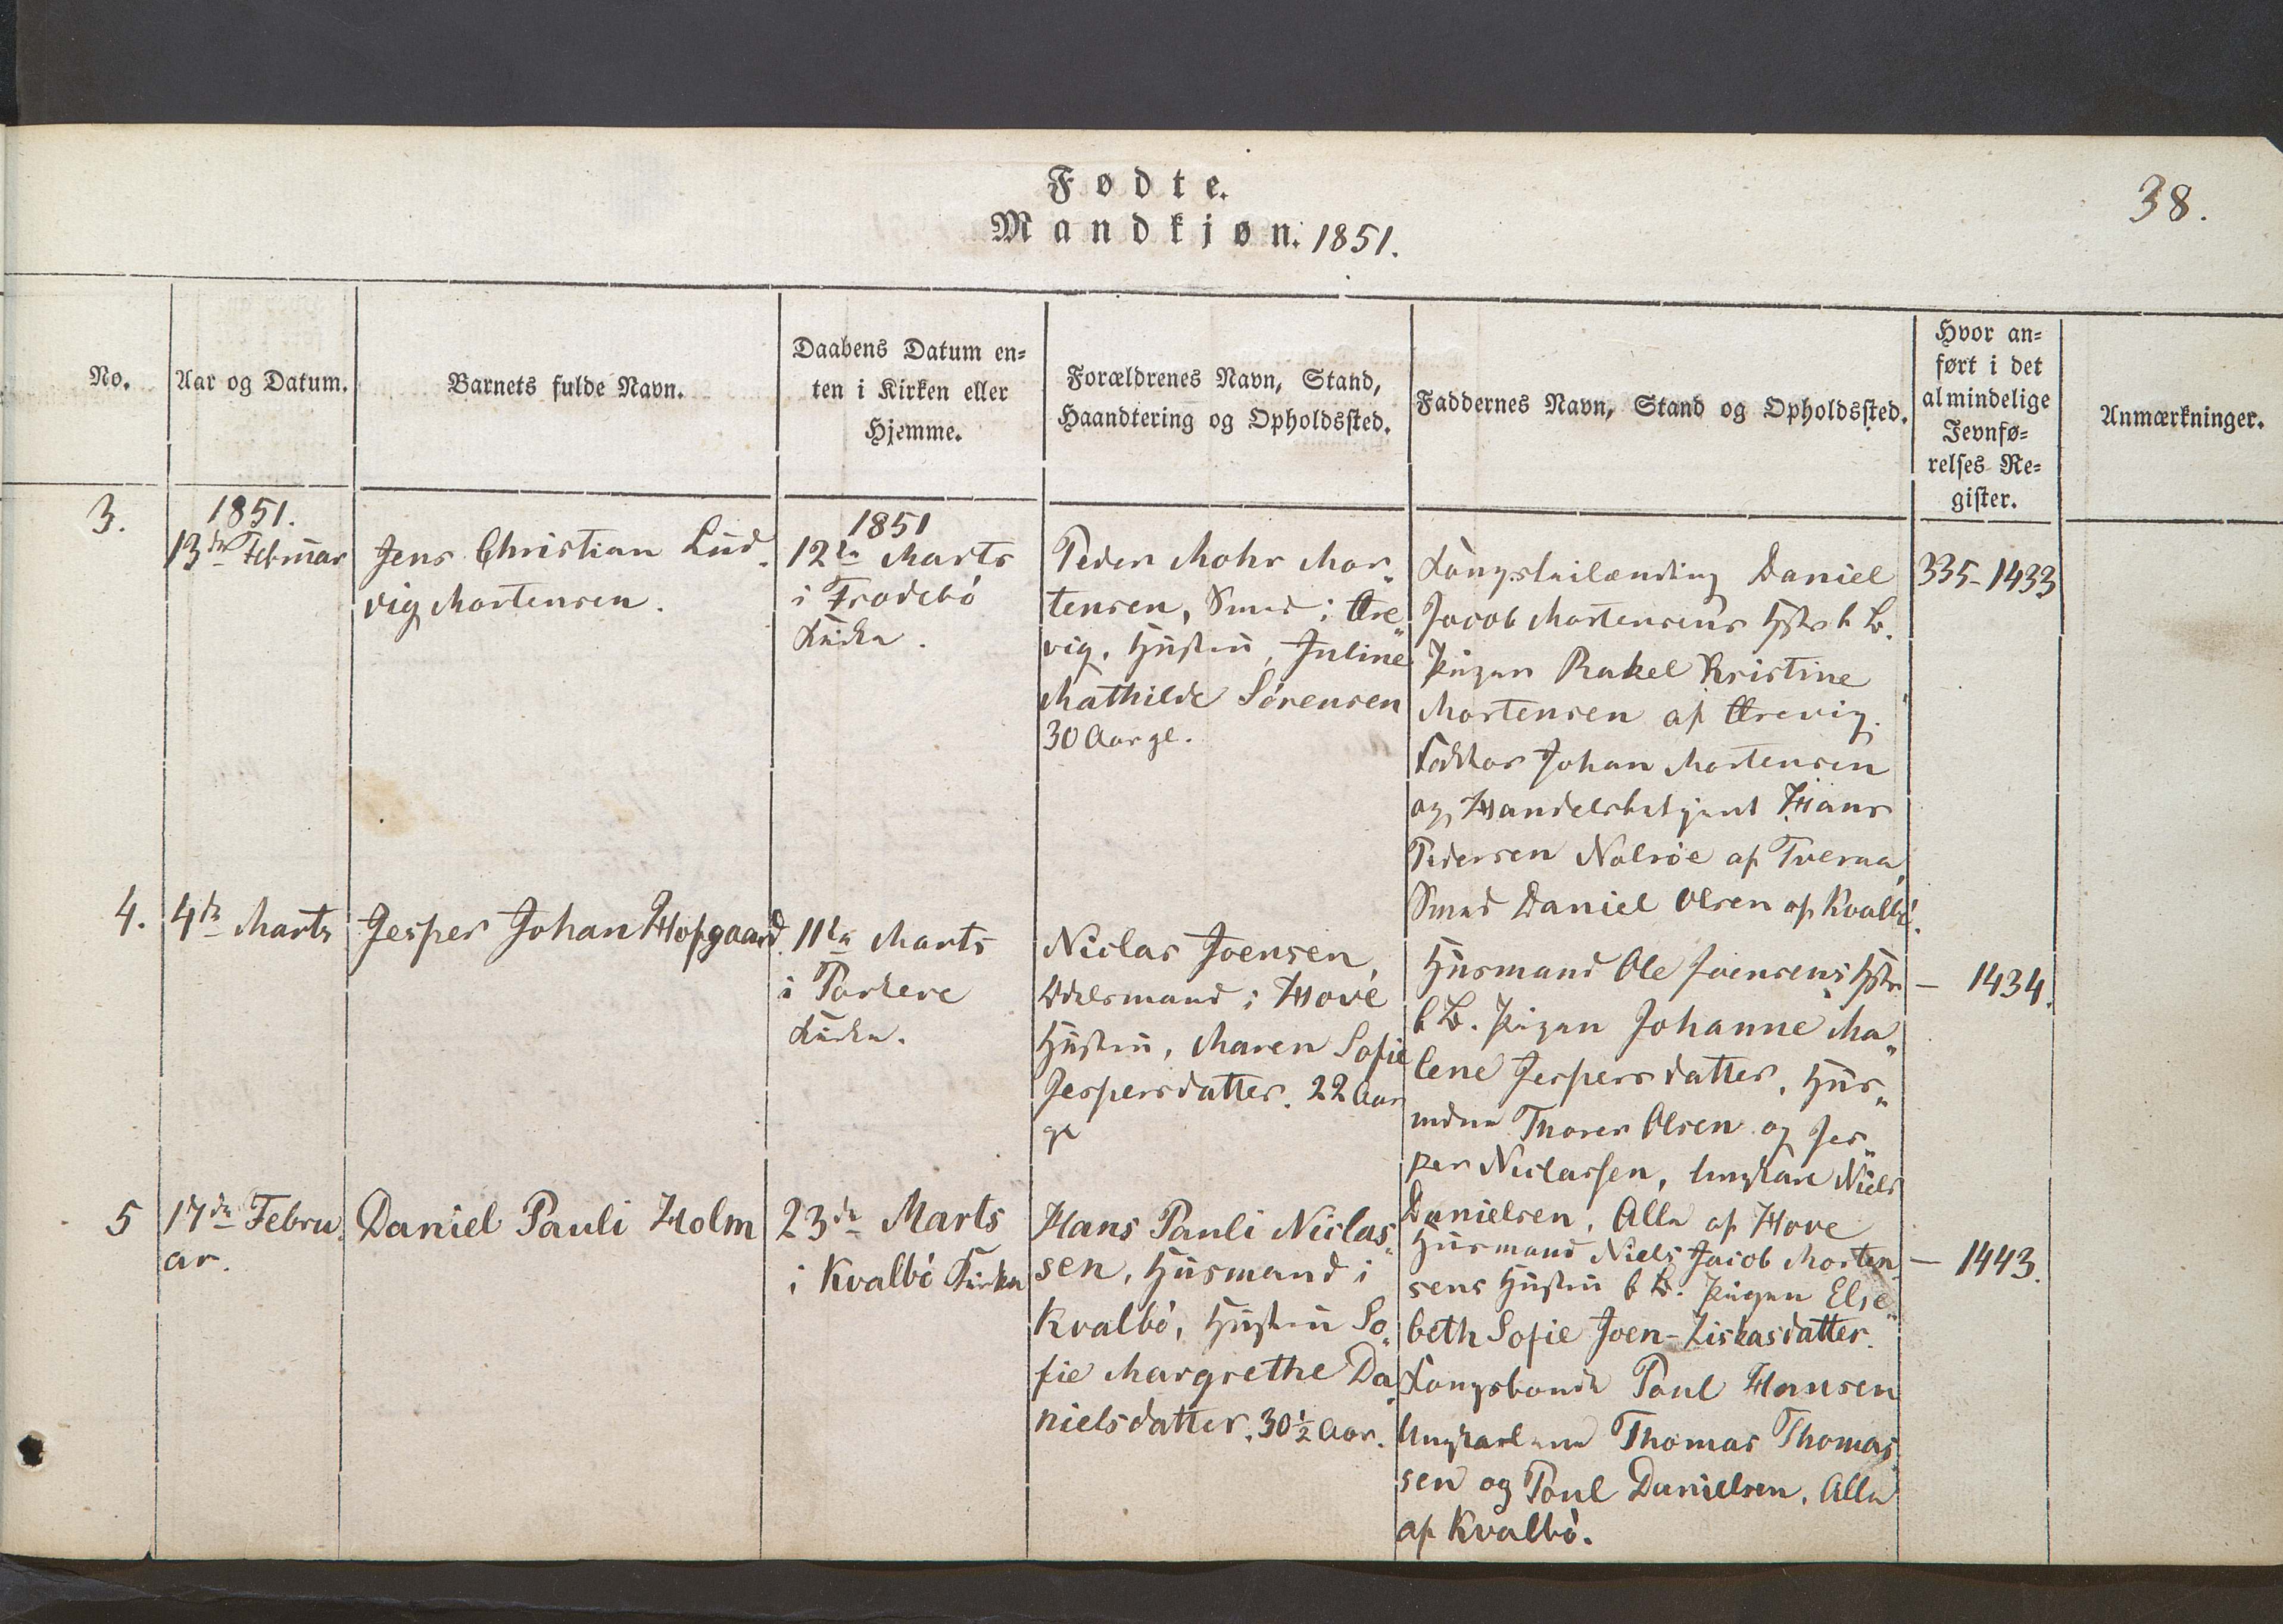 38.
Fødte.
Mandkjøn. 1851.
No.
Aar og Datum.
Barnets fulde Navn.
Daabens Datum en-
ten i Kirken eller
Hjemme.
Forældrenes Navn, Stand,
Haandtering og Opholdssted.
Faddernes Navn, Stand og Opholdssted.
Hvor an-
ført i det
almindelige
Jevnfø-
relses Re-
gister.
Anmærkninger.
3.
1851.
13de Februar
Jens Christian Lud-
vig Mortensen.
1851
12te Marts
i Frodebø
Kirke.
Peder Mohr Mor-
tensen, Smed i Øre-
vig, Hustru, Juline
Mathilde Sørensen
30 Aar gl.
Daniel
Jacob Mortensens Hstr b. B.
Pigen Rakel Kristine
Mortensen af Ørevig.
Faktor Johan Mortensen
og Handelsbetjent Hans
Pedersen Nolsøe af Tveraa,
Smed Daniel Olsen af Kvalbø.
335-1433
4.
4de Marts
Jesper Johan Hofgaard.
11te Marts
i Porkere
Kirke.
Niclas Joensen,
Odelsmand i Hove
Hustru, Maren Sofie
Jespersdatter. 22 Aar
gl
Husmand Ole Joensens Hstr
b. B. Pigen Johanne Ma-
lene Jespersdatter, Hus-
mdne Thorer Olsen og Jes-
per Niclassen, Ungkarl Niels
Danielsen, Alle af Hove
— 1434.
5
17de Febru-
ar.
Daniel Pauli Holm
23de Marts
i Kvalbø Kirke
Hans Pauli Niclas-
sen, Husmand i
Kvalbø, Hustru So-
fie Margrethe Da-
nielsdatter. 30½ Aar.
Husmand Niels Jacob Morten-
sens Hustru b. B. Pigen Else-
beth Sofie Joen-Ziskasdatter.
Kongsbonde Poul Hansen
Ungkarlene Thomas Thomas-
sen og Poul Danielsen. Alle
af Kvalbø.
— 1443.